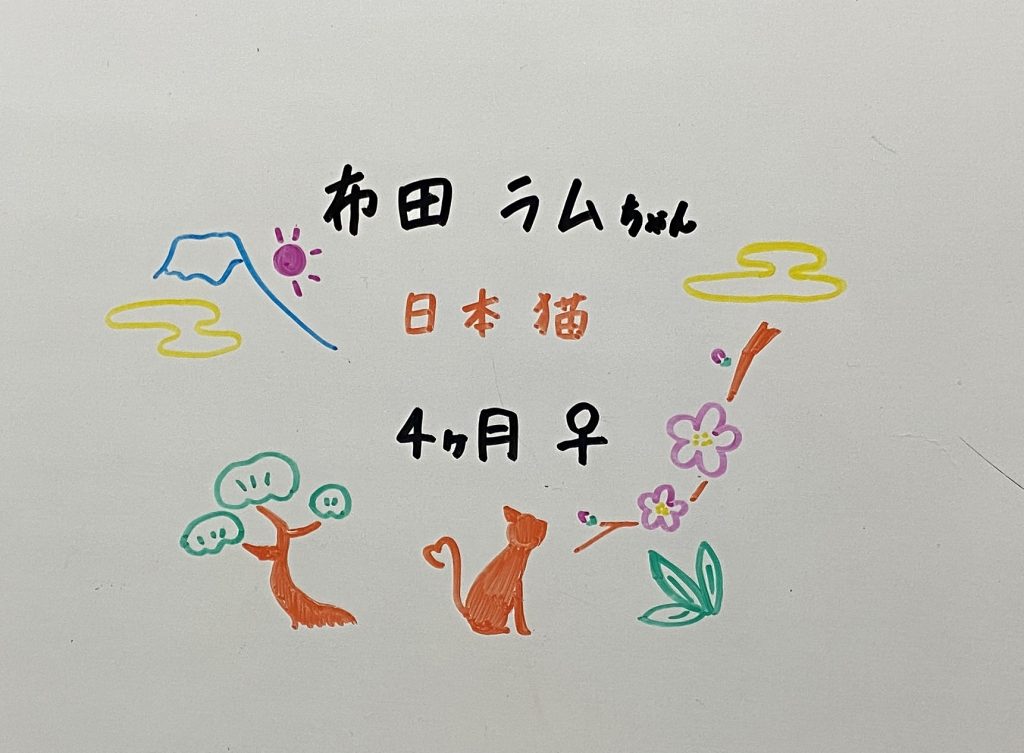 布田 ラムちゃん
日本猫
4ヶ月 ♀